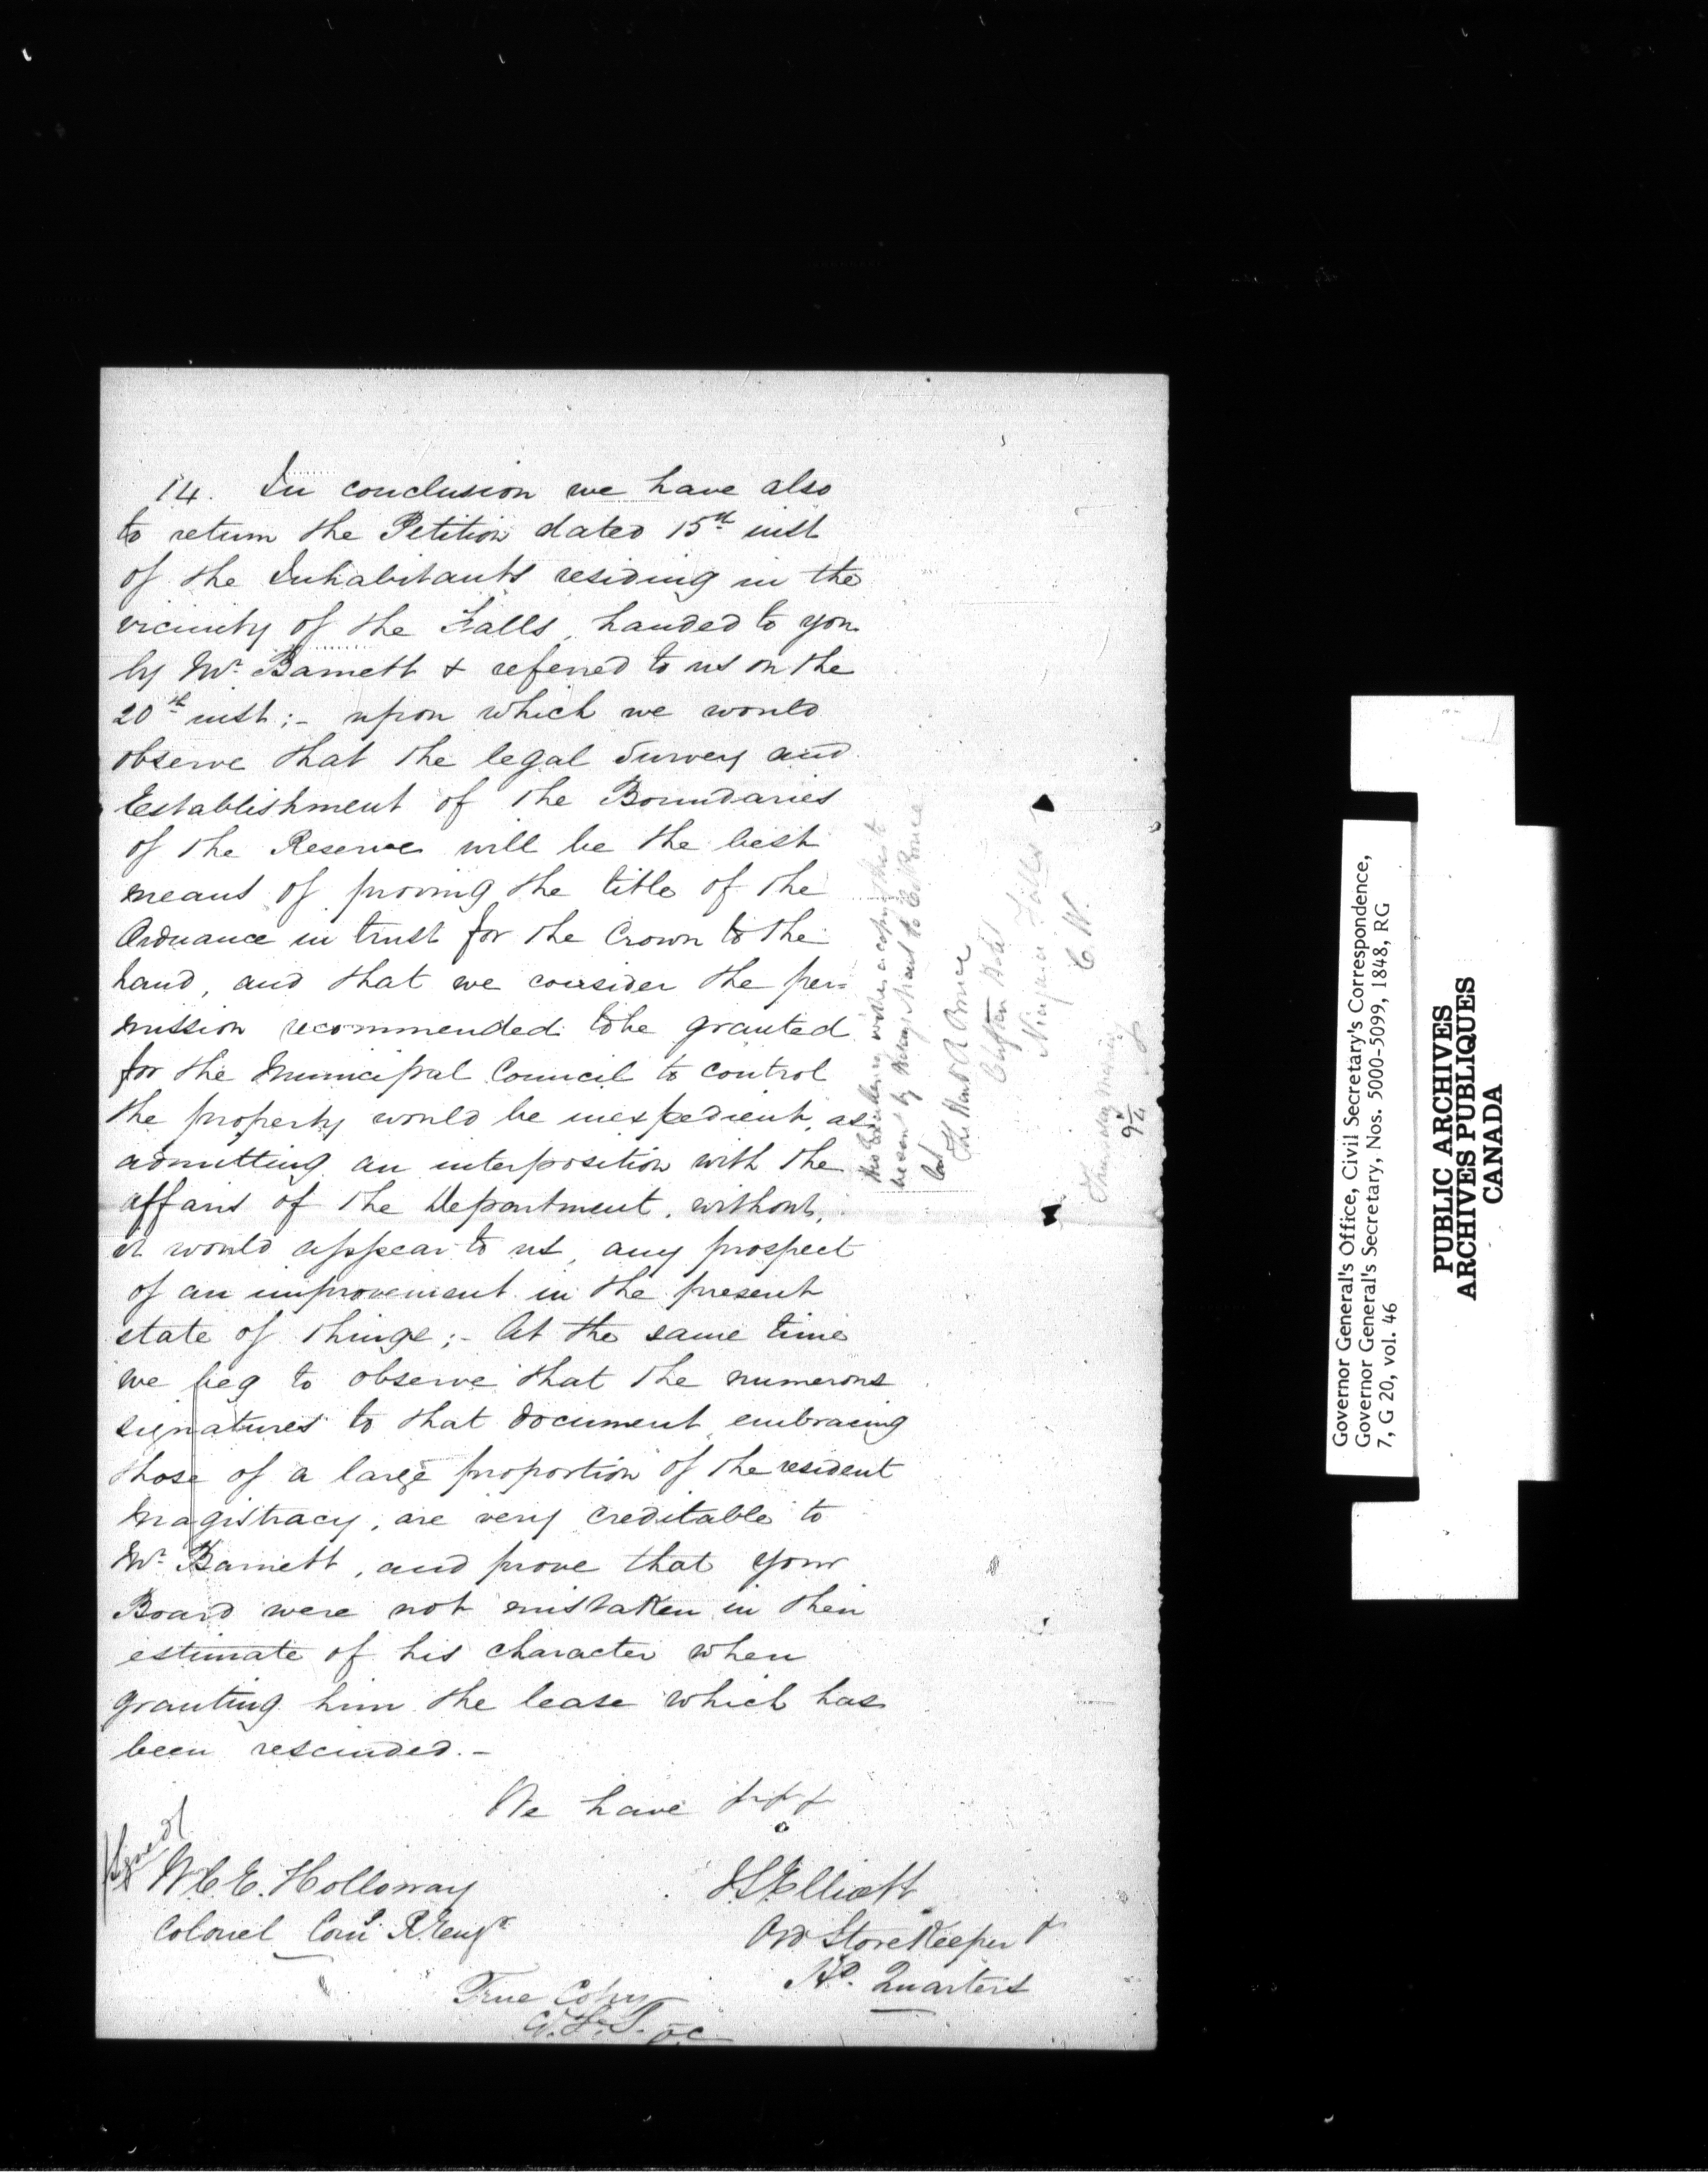 14. In conclusion we have also
to return the Petition dated 15th inst
of the Inhabitants residing in the
vicinity of the Falls, handed to you
by Mr. Barnett & referred to us on the
20th inst:- upon which we would
observe that the legal Survey and
Establishment of the Boundaries
of the Reserve will be the best
means of proving the title of the
Ordnance in trust for the Crown to the
land, and that we consider the per=
mission recommended to be granted
for the Municipal Council to control
the property would be inexpedient, as
admitting an interposition with the
affairs of the Department, without,
it would appear to us, any prospect
of an improvement in the present
state of things;- At the same time
we beg to observe that the numerous
signatures to that document embracing
those of a large proportion of the resident
Magistracy, are very creditable to
Mr. Barnett, and prove that your
Board were not mistaken in their
estimate of his character when
granting him the lease which has
been rescinded.-
We have
Signed
W.C.E. Holloway
Colonel Comg R. Engrs
Elliott
Ord StoreKeeper
Hd. Quarters
True Copy
His Excellency wishes a copy of this to
be sent by to
Col Bruce
The Honb
Clifton Hotel
Niagara Falls
C.W.
Thursday
Governor General's Office, Civil Secretary's Correspondence,
Governor General's Secretary, Nos. 5000-5099, 1848, RG
7, G 20, vol. 46
PUBLIC ARCHIVES
ARCHIVES PUBLIQUES
CANADA